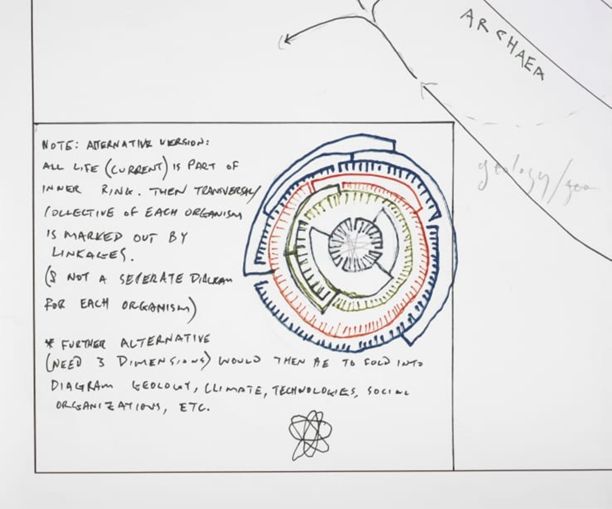 ARCHAEA
geology/geo
NOTE: ALTERNATIVE VERSION:
ALL LIFE (CURRENT) IS PART OF
INNER RING. THEN TRANSVERSAL/
COLLECTIVE OF EACH ORGANISM
IS MARKED OUT BY
LINKAGES.
(& NOT A SEPERATE DIAGRAM
FOR EACH ORGANISM)
* FURTHER ALTERNATIVE
(NEED 3 DIMENSIONS) WOULD THEN BE TO FOLD INTO
DIAGRAM GEOLOGY, CLIMATE, TECHNOLOGIES, SOCIAL
ORGANIZATIONS, ETC.